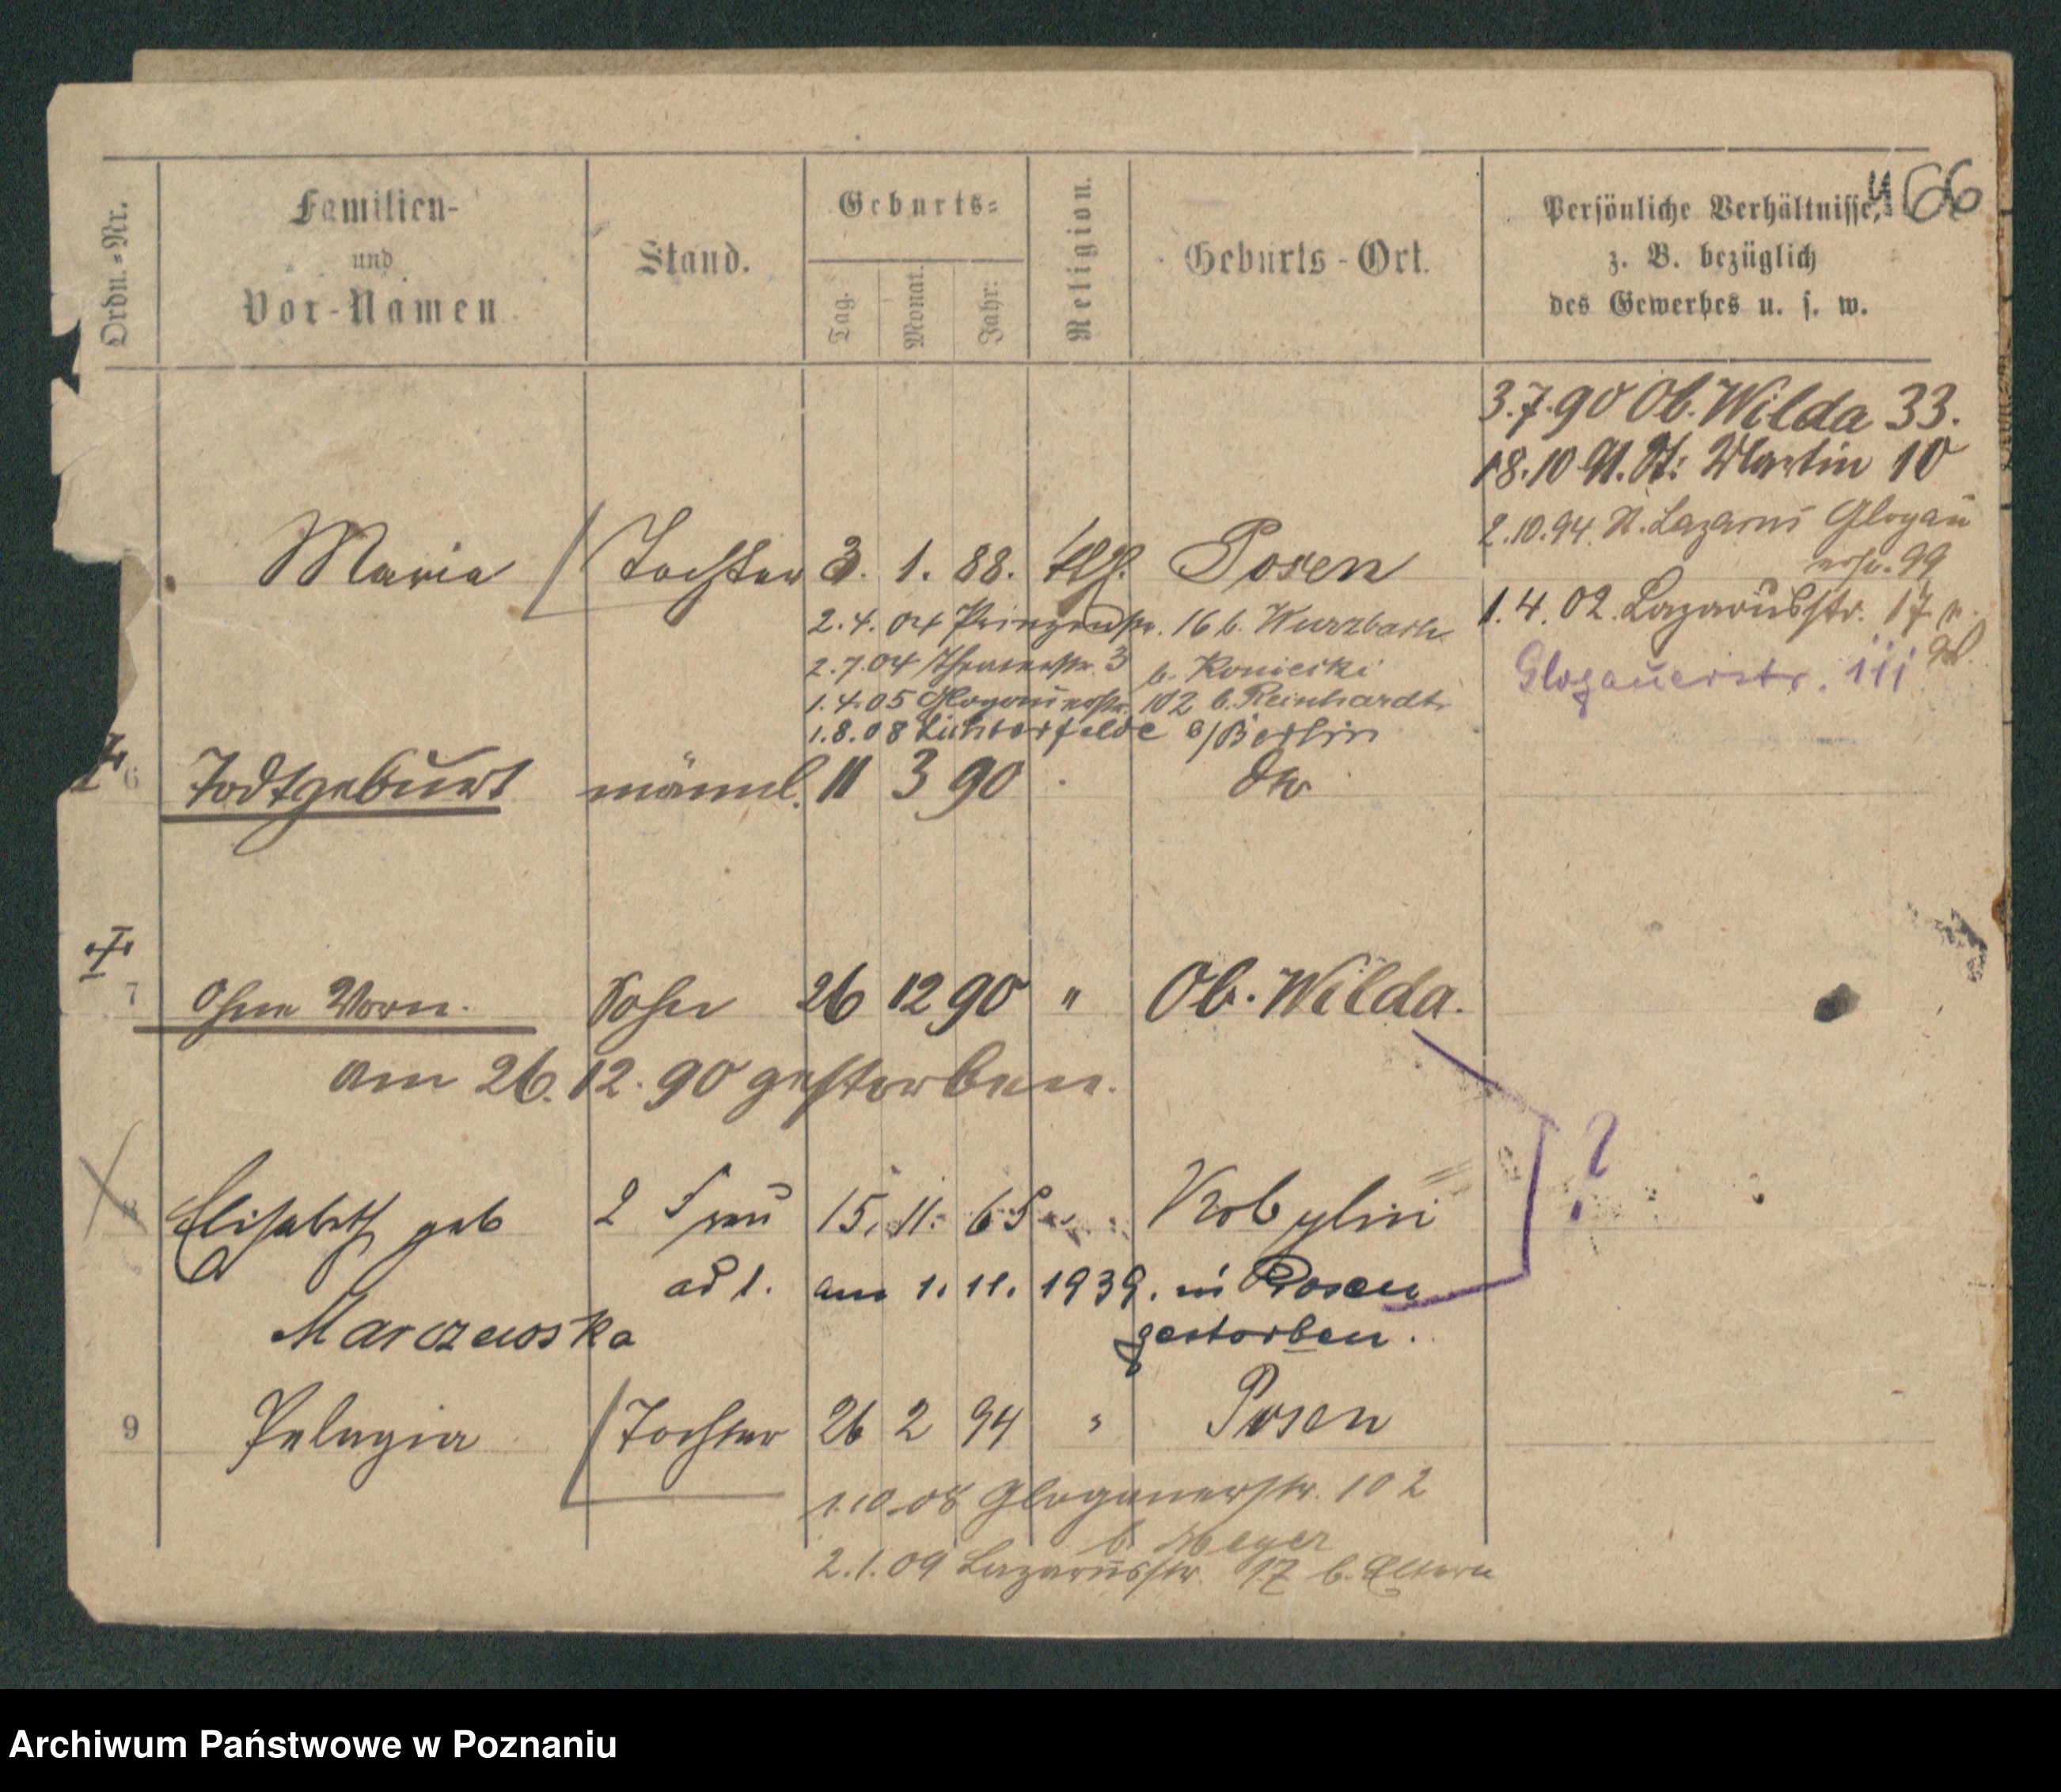 466
Ordn.-Nr.
Familien-
und
Vor-Namen
Stand.
Geburts-
Tag.
Monat.
Jahr.
Religion.
Geburts-Ort.
Persönliche Verhältnisse,
z. B. bezüglich
des Gewerbes u. s. w.
3.7.90 Ob. Wilda 33.
18.10 91. St. Martin 10
2.10.94. St. Lazarus Glogau
erstr. 99
Maria Tochter 3. 1. 88. kth. Posen
1.4.02. Lazarusstr. 17
2.4.04 Prinzenstr. 16 b. Wurzbach
Glogauerstr. 111
2.7.04 3 b. Koniecki
1.4.05 Glogauerstr. 102 b. Reinhardt
1.8.08 Lichterfelde b/Berlin
6 Todtgeburt männl. 11 3 90 dto
7 Ohne Vorn. Sohn 26 12 90 " Ob. Wilda.
am 26.12.90 gestorben.
8 Elisabeth geb 2 Frau 15. 11. 65 Kobylin
?
ad 1. am 1. 11. 1939. in Posen
Marczewska gestorben.
9 Pelagia Tochter 26 2 94 " Posen
1.10.08 Glogauerstr. 102
b. Meyer
2.1.09 Lazarusstr. 17 b. Eltern
Archiwum Państwowe w Poznaniu